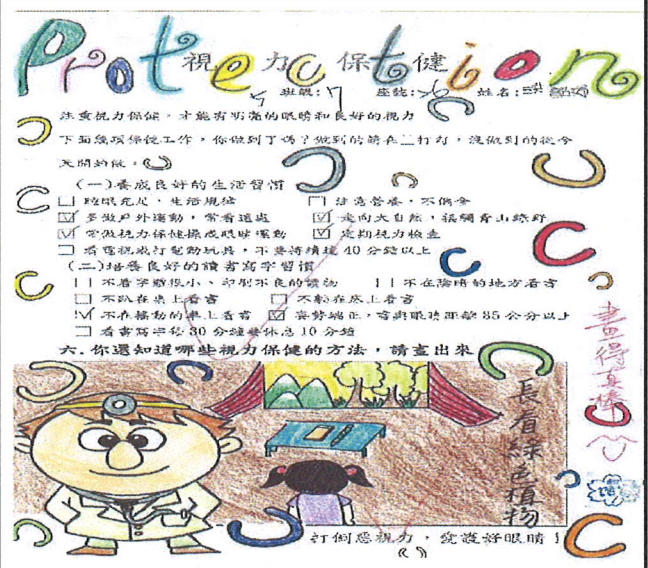 Protection
視力保健
班級：7 座號：26 姓名：
注重視力保健，才能有明亮的眼睛和良好的視力
下面幾項保健工作，你做到了嗎？做到的請在□打勾，沒做到的從今
天開始做。
(一)養成良好的生活習慣
□ 睡眠充足，生活規律 □ 注意營養，不偏食
☑ 多做戶外運動，常看遠處 ☑ 走向大自然，接觸青山綠野
☑ 常做視力保健操或眼球運動 ☑ 定期視力檢查
□ 看電視或打電動玩具，不要持續達 40 分鐘以上
(二)培養良好的讀書寫字習慣
□ 不看字體很小、印刷不良的讀物 □ 不在陰暗的地方看書
□ 不趴在桌上看書 □ 不躺在床上看書
☑ 不在搖動的車上看書 ☑ 姿勢端正，書與眼睛距離 35 公分以上
□ 看書寫字每 30 分鐘要休息 10 分鐘
六．你還知道哪些視力保健的方法，請畫出來
畫得真棒
長看綠色植物
打倒惡視力，愛護好眼睛！